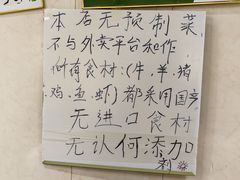 本店无预制菜
不与外卖平台和作
所有食材:(牛.羊.猪
.鸡.鱼.虾)都采用国产
无进口食材
无认何添加